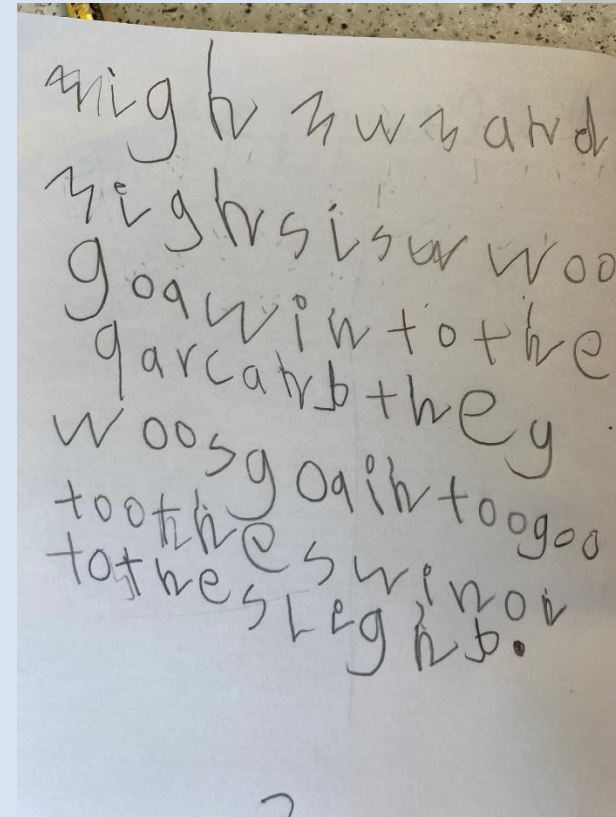 migh mum and
migh sisur woo
goa win to the
qarc anb they
woos goa in too goo
too the swin or
to the slegnb.